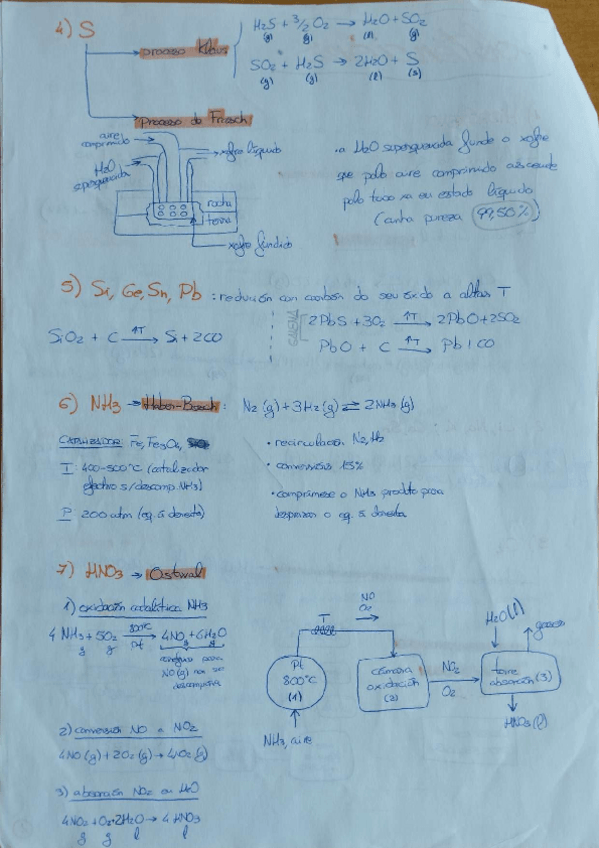 4) S
proceso Klaus
H2S + 3/2 O2 → H2O + SO2
(g) (g) (l) (g)
SO2 + H2S → 2H2O + S
(g) (g) (l) (s)
Proceso de Frasch
aire comprimido
H2O superquecida
xofre líquido
rocha
terra
xofre fundido
• a H2O superquecida funde o xofre
que polo aire comprimido ascende
polo tubo xa en estado líquido
(cunha pureza 99,50%)
5) Si, Ge, Sn, Pb : redución con carbón do seu óxido a altas T
SiO2 + C →↑T Si + 2CO
GALENA
2PbS + 3O2 →↑T 2PbO + 2SO2
PbO + C →↑T Pb + CO
6) NH3 → Haber-Bosch : N2(g) + 3H2(g) ⇌ 2NH3(g)
CATALIZADOR: Fe, Fe3O4,
T : 400-500°C (catalizador
efectivo s/descomp. NH3)
P 200 atm (eq. á dereita)
• recirculación N2, H2
• conversión 15%
• comprímese o NH3 produto para
desprazar o eq. á dereita
7) HNO3 → Ostwal
1) oxidación catalítica NH3
4 NH3 + 5O2 →800°C Pt 4NO + 6H2O
g g g g
NO(g) non se
2) conversión NO a NO2
4NO(g) + 2O2(g) → 4NO2(g)
3) absorción NO2 en H2O
4NO2 + O2 + 2H2O → 4 HNO3
g g l l
T
NO
O2
Pt
800°C
(1)
NH3, aire
cámara
oxidación
(2)
NO2
O2
H2O(l)
gases
torre
absorción (3)
HNO3(l)